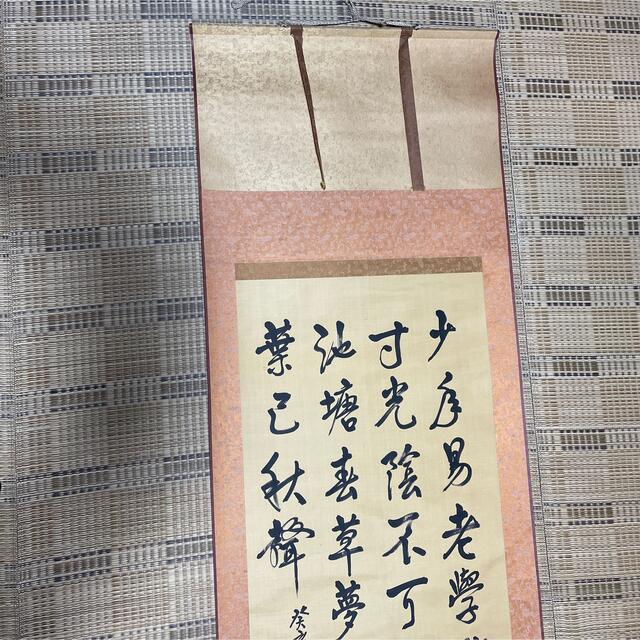 少年易老學
寸光陰不可
池塘春草夢
葉已秋聲
癸